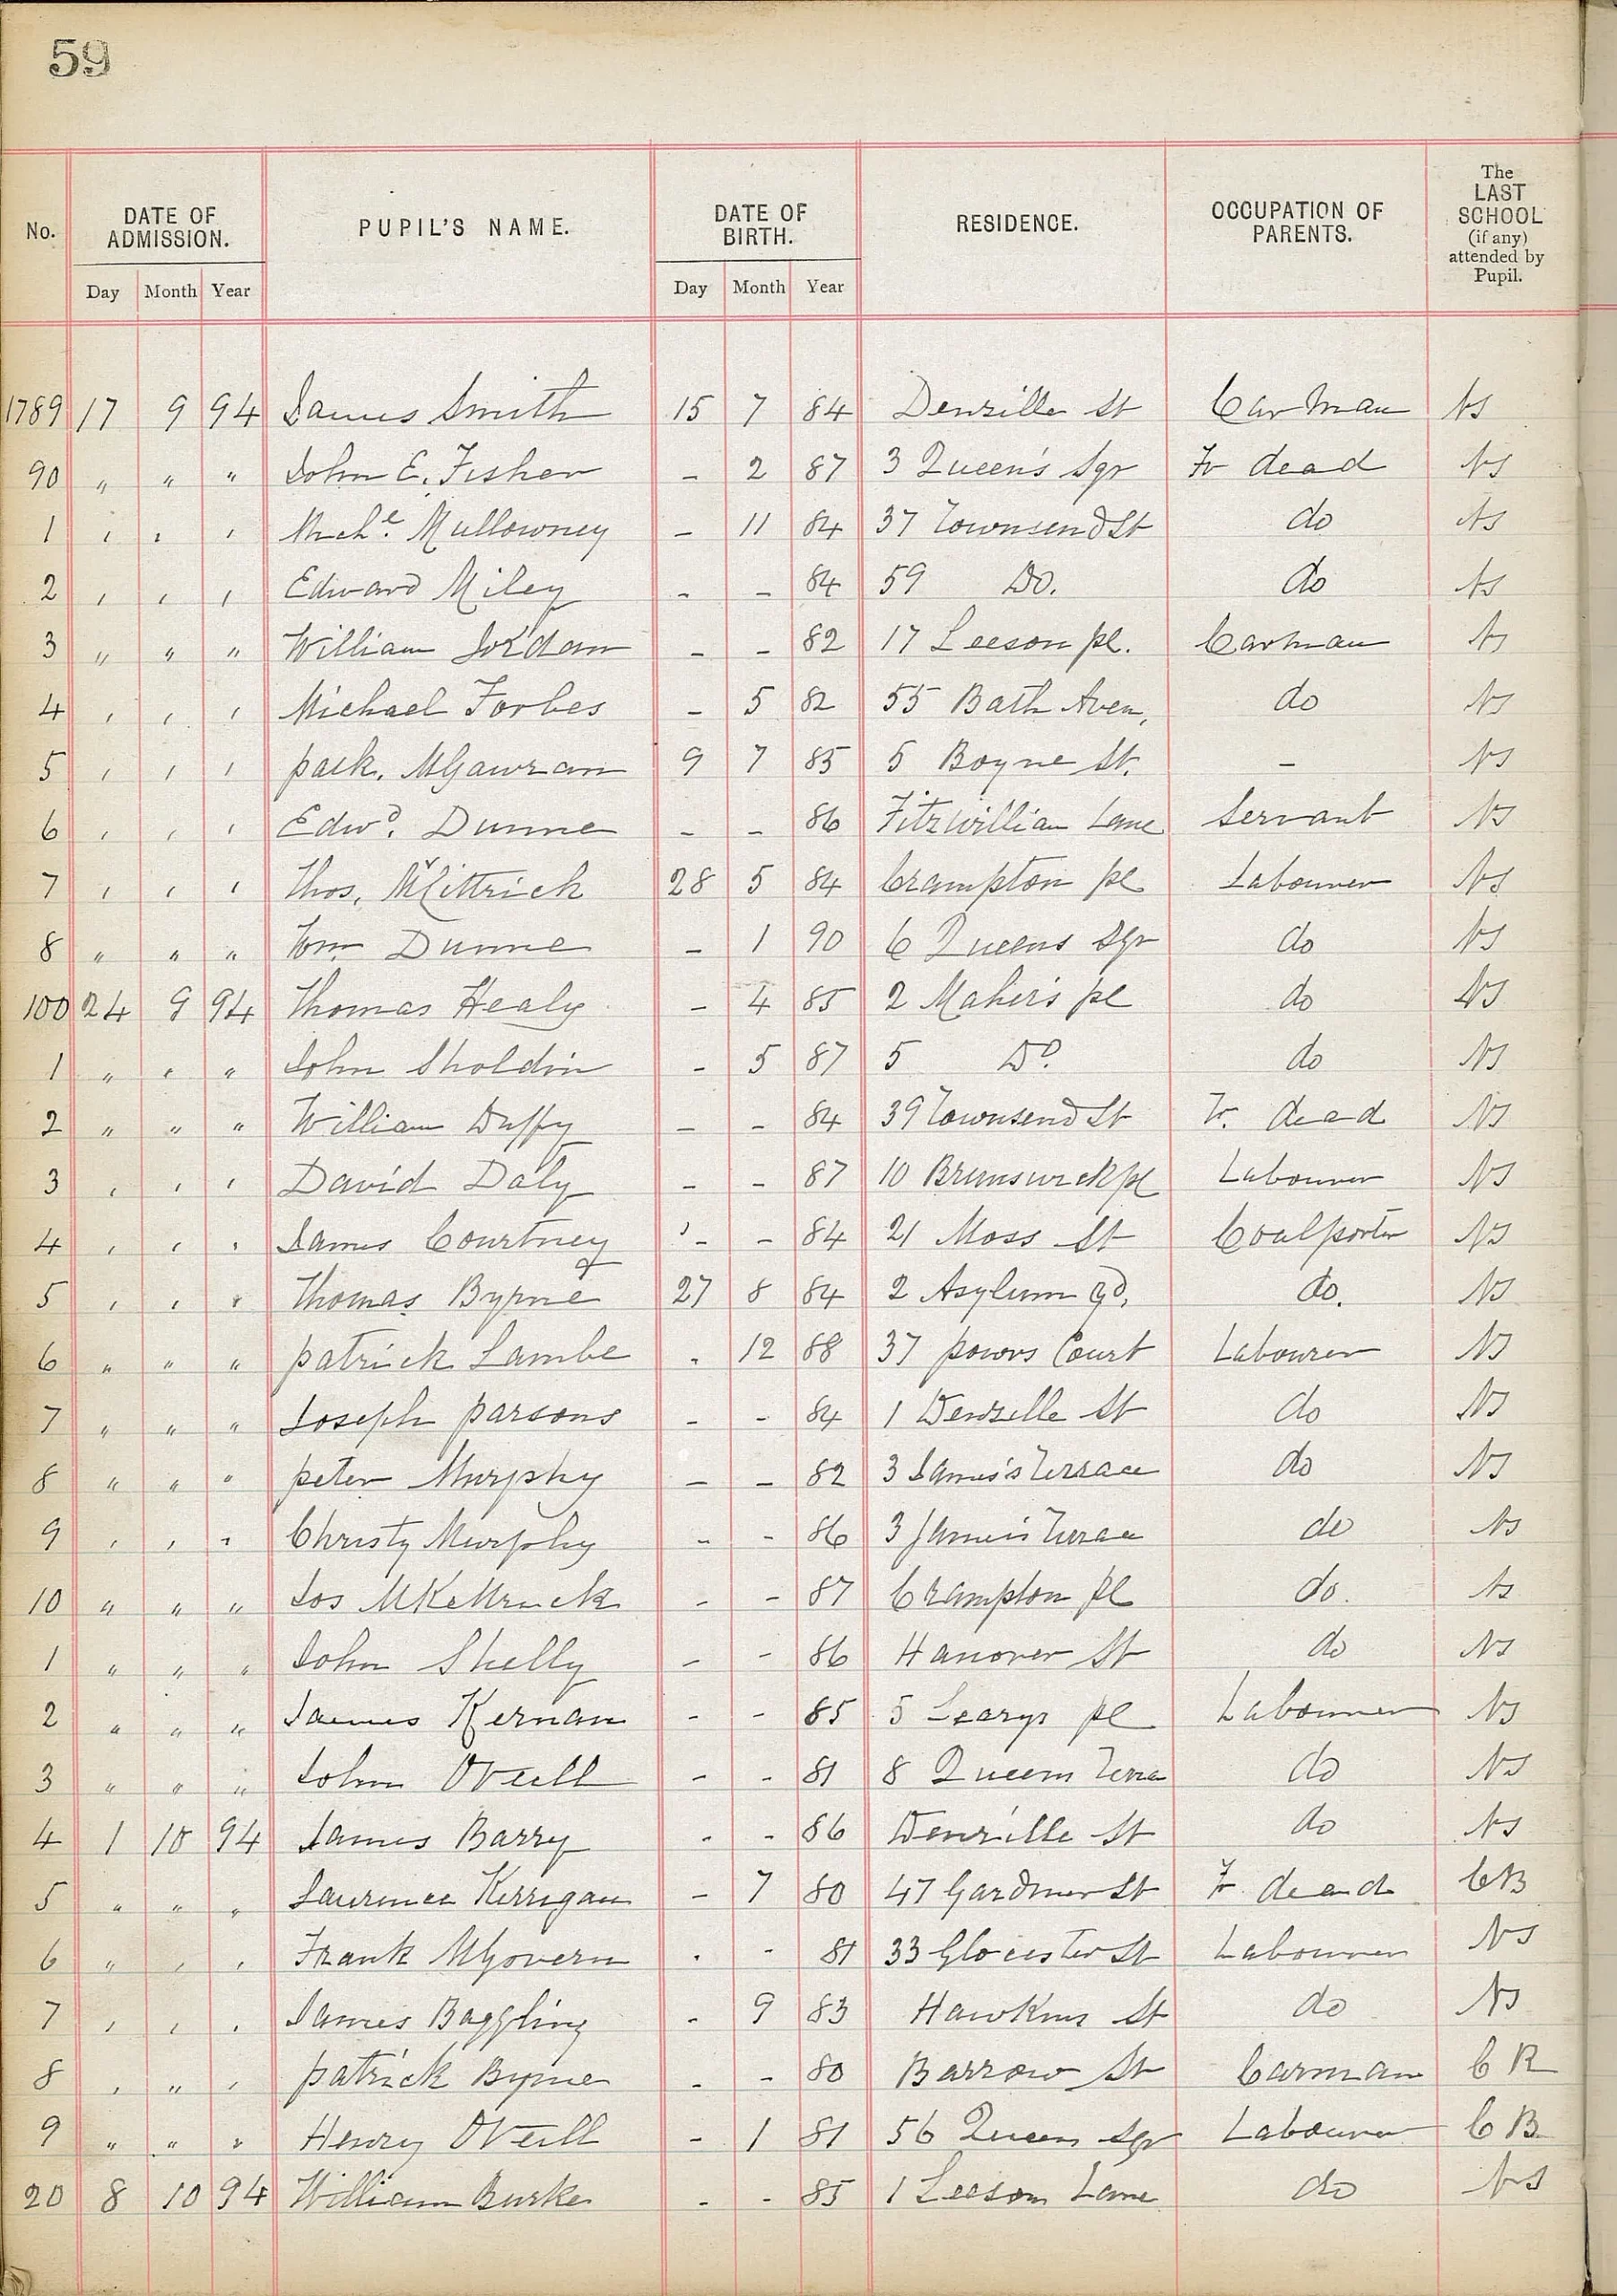 59
No. DATE OF ADMISSION. PUPIL'S NAME. DATE OF BIRTH. RESIDENCE. OCCUPATION OF PARENTS. The LAST SCHOOL (if any) attended by Pupil.
Day Month Year Day Month Year
1789 17 9 94 James Smith 15 7 84 Denzille St Carman NS
90 " " " John E. Fisher - 2 87 3 Queen's Sqr Fr dead NS
1 " " " Miche. Mullowney - 11 84 37 Townsend St do NS
2 " " " Edward Miley - - 84 59 Do. do NS
3 " " " William Jordan - - 82 17 Leeson pl. Carman NS
4 " " " Michael Forbes - 5 82 55 Bath Aven. do NS
5 " " " patk. McGawran 9 7 85 5 Boyne St. - NS
6 " " " Edwd. Dunne - - 86 Fitzwilliam Lane Servant NS
7 " " " Thos. McKittrick 28 5 84 Crampton pl Labourer NS
8 " " " Wm Dunne - 1 90 6 Queens Sqr do NS
100 24 9 94 Thomas Healy - 4 85 2 Maher's pl do NS
1 " " " John Sholdin - 5 87 5 Do. do NS
2 " " " William Duffy - - 84 39 Townsend St Fr. dead NS
3 " " " David Daly - - 87 10 Brunswick pl Labourer NS
4 " " " James Courtney - - 84 21 Moss St Coalporter NS
5 " " " Thomas Byrne 27 8 84 2 Asylum Yd. do. NS
6 " " " patrick Lambe . 12 88 37 powrs Court Labourer NS
7 " " " Joseph parsons - - 84 1 Denzille St do NS
8 " " " peter Murphy - - 82 3 James's Terrace do NS
9 " " " Christy Murphy - - 86 3 James's Terrace do NS
10 " " " Jos McKettrick - - 87 Crampton pl do. NS
1 " " " John Shelly - - 86 Hanover St do NS
2 " " " James Kernan - - 85 5 Learys pl Labourer NS
3 " " " John ONeill - - 81 8 Queens Terra do NS
4 1 10 94 James Barry - - 86 Denzille St do NS
5 " " " Laurence Kerrigan - 7 80 47 Gardiner St Fr dead CB
6 " " " Frank McGovern . - 81 33 Glocester St Labourer NS
7 " " " James Baggling - 9 83 Hawkins St do NS
8 " " " patrick Byrne - - 80 Barrow St Carman CB
9 " " " Henry ONeill - 1 81 56 Queens Sqr Labourer CB
20 8 10 94 William Burke - - 85 1 Leeson Lane do NS